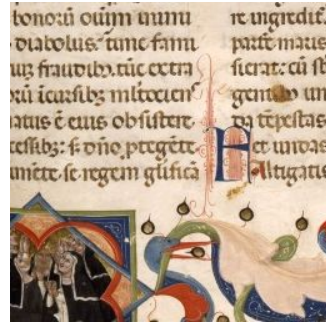 bonoꝝ ouium inimi
diabolus. tunc fami
uꝫ fraudibꝫ. tūc extra
ꝝū īcarsibꝫ
atus ē eius obsistere
ceſſibꝫ: ſi dn̄o ꝓtegēte
umēte. se regem glificā
re ingredit᷑
parte maris
fierat: cū ſt
gentiū un
da tēpestas
et undas
Mitigatis